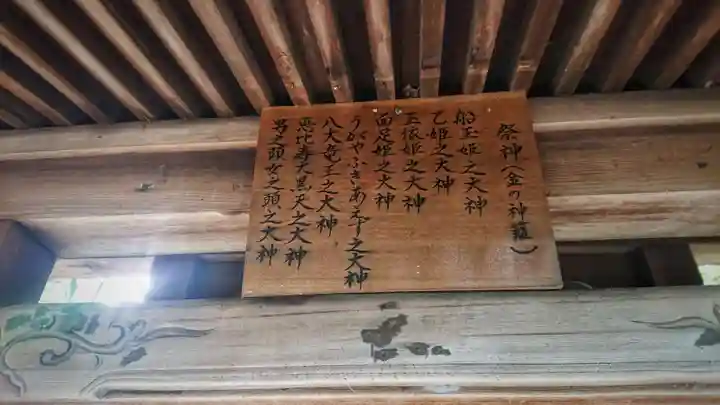 祭神(金の神龍)
船玉姫之大神
乙姫之大神
玉依姫之大神
面足姫之大神
うがやふきあえず之大神
八大竜王之大神
恵比寿大黒天之大神
男之頭女之頭之大神